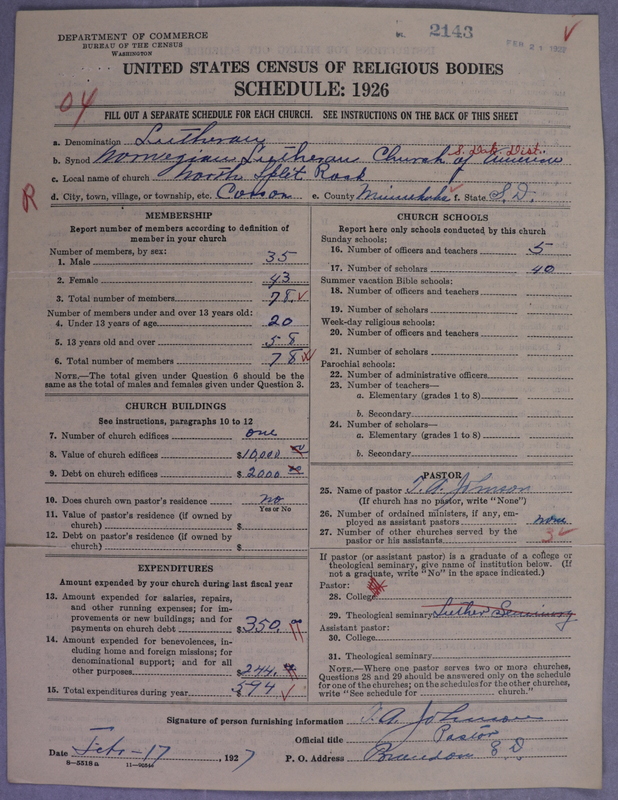 DEPARTMENT OF COMMERCE
BUREAU OF THE CENSUS
WASHINGTON
2143
FEB 21 1927
UNITED STATES CENSUS OF RELIGIOUS BODIES
SCHEDULE: 1926
04
FILL OUT A SEPARATE SCHEDULE FOR EACH CHURCH. SEE INSTRUCTIONS ON THE BACK OF THIS SHEET
a. Denomination Lutheran
b. Synod Norwegian Lutheran Church of America S. Dak. Dist.
c. Local name of church North Split Rock
R
d. City, town, village, or township, etc. Corson e. County Minnehaha f. State S.D.
MEMBERSHIP
Report number of members according to definition of member in your church
Number of members, by sex:
1. Male 35
2. Female 43
3. Total number of members 78
Number of members under and over 13 years old:
4. Under 13 years of age 20
5. 13 years old and over 58
6. Total number of members 78
NOTE.—The total given under Question 6 should be same as the total of males and females given under Question 3.
CHURCH BUILDINGS
See instructions, paragraphs 10 to 12
7. Number of church edifices one
8. Value of church edifices $10,000 00
9. Debt on church edifices $2000 00
10. Does church own pastor's residence no
Yes or No
11. Value of pastor's residence (if owned by church) $
12. Debt on pastor's residence (if owned by church) $
EXPENDITURES
Amount expended by your church during last fiscal year
13. Amount expended for salaries, repairs, and other running expenses; for improvements or new buildings; and for payments on church debt $350.00
14. Amount expended for benevolences, including home and foreign missions; for denominational support; and for all other purposes $244.00
15. Total expenditures during year $594
CHURCH SCHOOLS
Report here only schools conducted by this church
Sunday schools:
16. Number of officers and teachers 5
17. Number of scholars 40
Summer vacation Bible schools:
18. Number of officers and teachers
19. Number of scholars
Week-day religious schools:
20. Number of officers and teachers
21. Number of scholars
Parochial schools:
22. Number of administrative officers
23. Number of teachers—
a. Elementary (grades 1 to 8)
b. Secondary
24. Number of scholars—
a. Elementary (grades 1 to 8)
b. Secondary
PASTOR
25. Name of pastor T. A. Johnson
(If church has no pastor, write "None")
26. Number of ordained ministers, if any, employed as assistant pastors none
27. Number of other churches served by the pastor or his assistants 3
If pastor (or assistant pastor) is a graduate of a college or theological seminary, give name of institution below. (If not a graduate, write "No" in the space indicated.)
Pastor:
28. College
29. Theological seminary Luther Seminary
Assistant pastor:
30. College
31. Theological seminary
NOTE.—Where one pastor serves two or more churches, Questions 28 and 29 should be answered only on the schedule for one of the churches; on the schedules for the other churches, write "See schedule for church."
Signature of person furnishing information T. A. Johnson
Official title Pastor
Date Feb-17, 1927 P. O. Address Brandon S D
8—5518 a